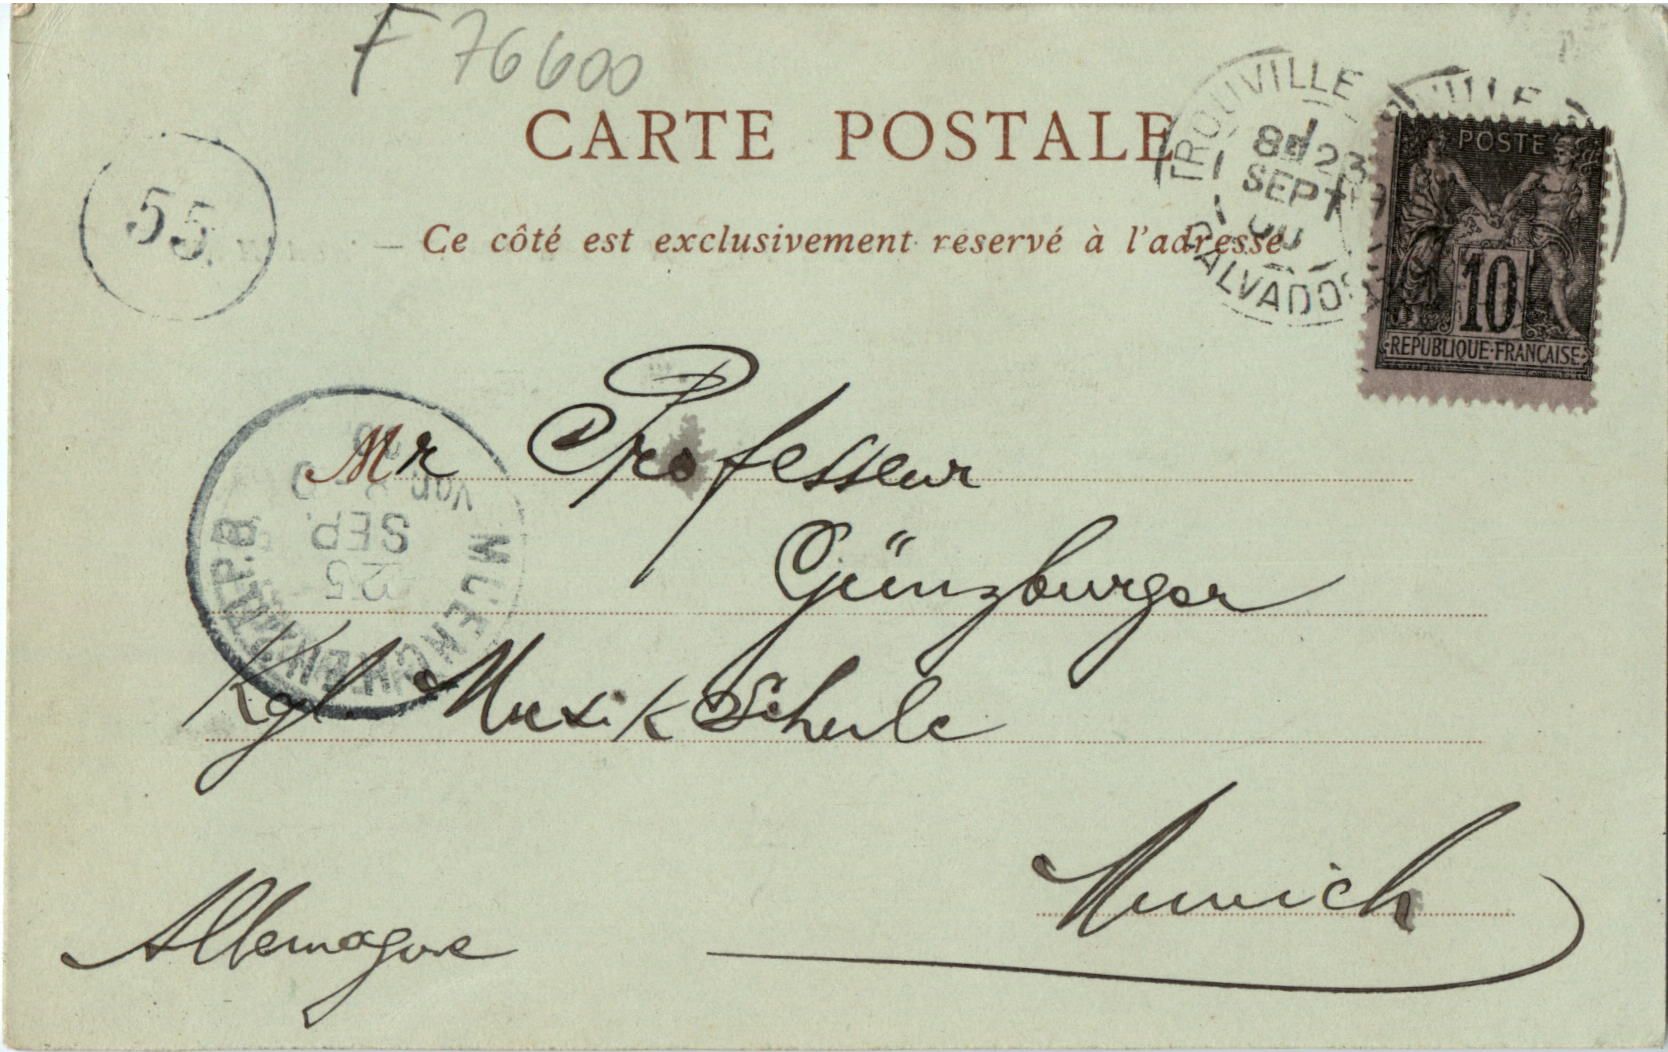 F 76600
CARTE POSTALE
Ce côté est exclusivement réservé à l'adresse
55
TROUVILLE
8E 23
SEPT
00
CALVADOS
POSTE
10
REPUBLIQUE FRANCAISE
Mr Professeur
Günzburger
Kgl. Musikschule
Munich
Allemagne
MUENCHEN
25
SEP.